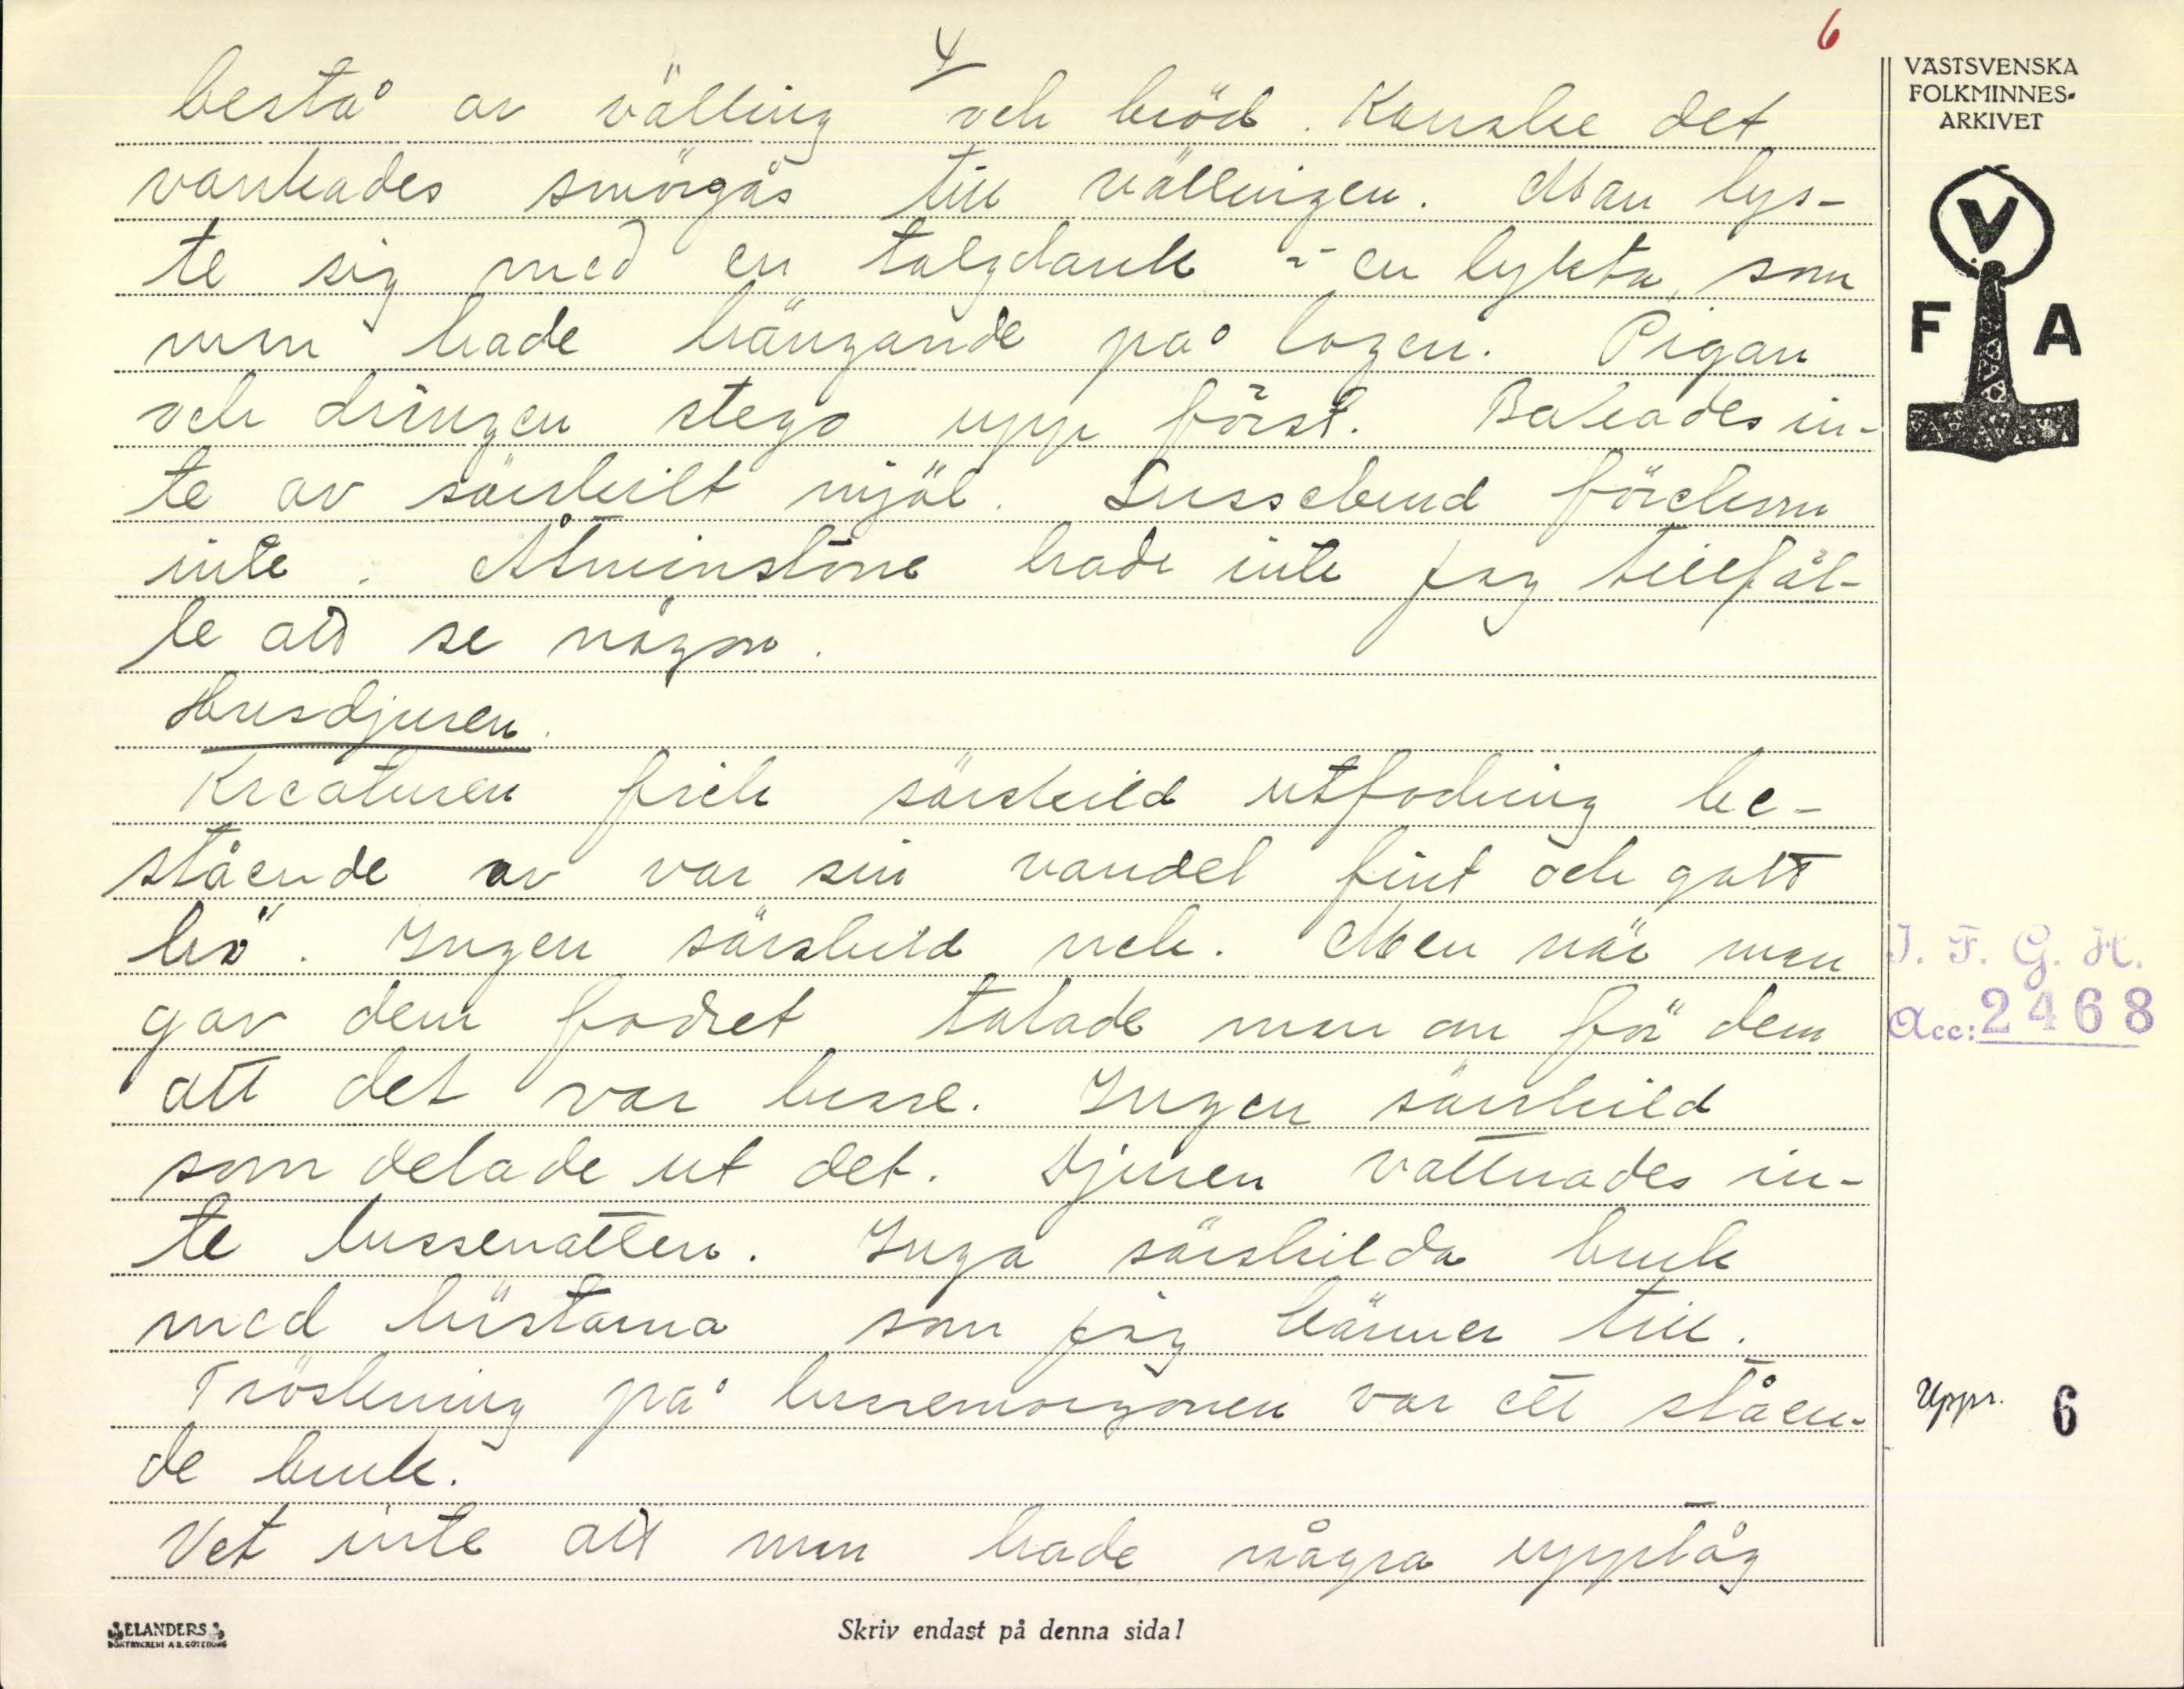 4
6
bestå av välling och bröd. Kanske det
vankades smörgås till vällingen. Man lys-
te sig med en talgdank i en lykta, som
man hade hängande på logen. Pigan
och drängen stego upp först. Bakades in-
te av särskilt mjöl. Lussebrud förekom
inte. Åtminstone hade inte jag tillfäl-
le att se någon.
Husdjuren.
Kreaturen fick särskild utfodring be-
stående av var sin vandel fint och gott
hö. Ingen särskild rek. Men när man
gav dem fodret talade man om för dem
att det var lusse. Ingen särskild
som delade ut det. Djuren vattnades in-
te lussenatten. Inga särskilda bruk
med hästarna som jag känner till.
Tröskning på lussemorgonen var ett ståen-
de bruk.
Vet inte att man hade några upptåg
VÄSTSVENSKA
FOLKMINNES-
ARKIVET
V
F A
I. F. G. H.
Acc: 2468
Uppr. 6
ELANDERS
BOKTRYCKERI A.B. GÖTEBORG
Skriv endast på denna sida!